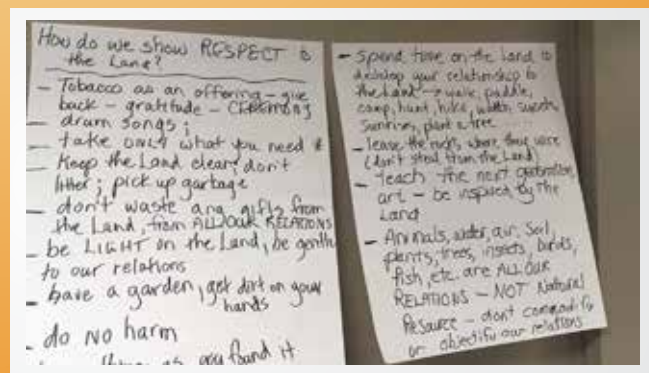 How do we show RESPECT to
the Land?
- Tobacco as an offering - give
back - gratitude - CEREMONY
- drum songs;
- take ONLY what you need &
- Keep the Land clean, don't
litter; pick up garbage
- don't waste any gifts from
the Land, from ALL OUR RELATIONS
- be LIGHT on the Land, be gentle
to our relations
- have a garden, get dirt on your
hands
- do NO harm
as you found it
- Spend time on the land to
develop your relationship to
the Land → walk, paddle,
camp, hunt, hike, watch sunsets,
sunrises, plant a tree
- leave the rocks where they were
(don't steal from the Land)
- teach the next generation
art - be inspired by the
Land
- Animals, water, air, soil,
plants, trees, insects, birds,
fish, etc. are ALL OUR
RELATIONS - NOT Natural
Resource - don't commodify
or objectify our relations